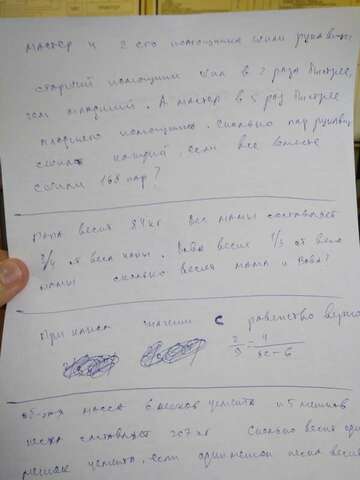 мастер и 2 его помощника шили рукавицы
старший помощник шил в 2 раза быстрее,
чем младший. А мастер в 5 раз быстрее
помощника. Сколько пар рукавиц
сшил каждый, если все вместе
сшили 168 пар?
Папа весит 84 кг Вес мамы составляет
3/4 от веса папы. Вова весит 1/3 от веса
мамы сколько весит мама и Вова?
При каких значении с равенство верно
= 4
масса 6 мешков цемента и 5 мешков
песка составляет 207 кг Сколько весит оди
мешок цемента, если один мешок песка весит